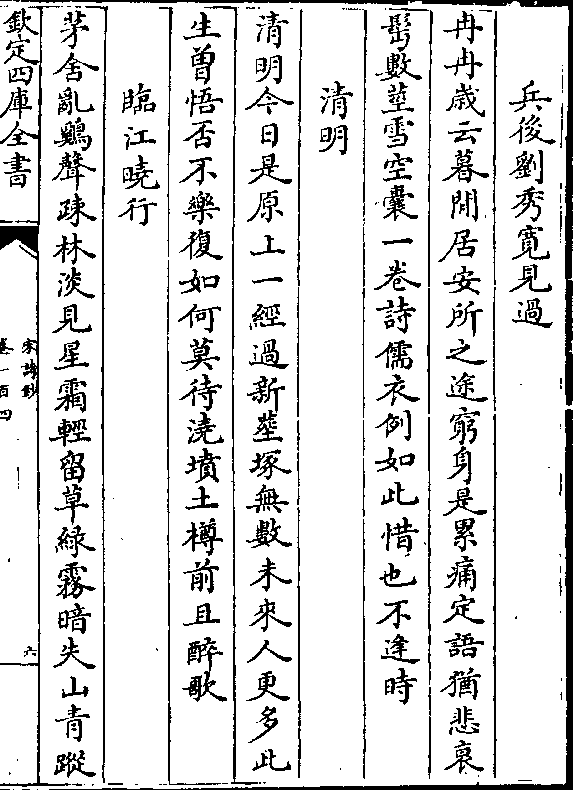 兵後劉秀寛見過
冉冉歳云暮閒居安所之途窮身是累痛定語猶悲衰
髩數莖雪空囊一卷詩儒衣例如此惜也不逢時
清明
清明今日是原上一經過新塟塚無數未來人更多此
生曾悟否不樂復如何莫待澆墳土樽前且醉歌
臨江曉行
茅舍亂鷄聲疎林淡見星霜輕留草緑霧暗失山青蹤
欽定四庫全書
宋詩鈔
卷一百四
六